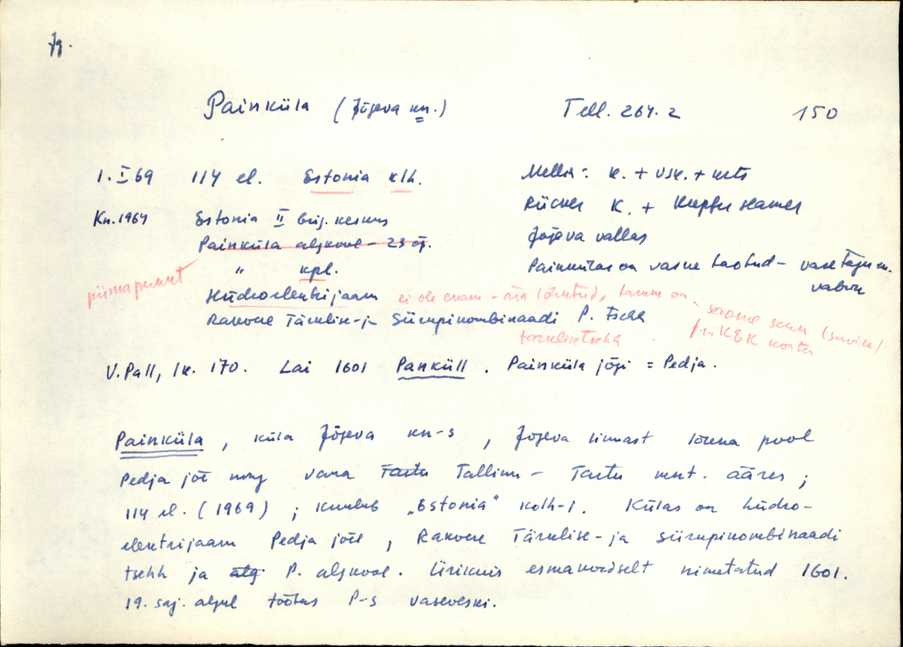 Jg.
Painküla (Jõgeva kn.) Tell. 264.2 150
1. I 69 114 el. Estonia klh.
Kn. 1964 Estonia II brig. keskus
Painküla algkool - 23 õp.
" kpl.
piimapunkt
Hüdroelektrijaam ei ole enam - ära lõhutud, tamm on
Rakvere Tärklise- ja Siirupikombinaadi P. tsehh
tärklisetsehh
Mellin: K. + vsk. + kõrts
Rücker K. + Kupfer Hamer
Jõgeva vallas
Painkülas on vasne taotud -
V. Pall, lk. 170. Lai 1601 Panküll. Painküla jõgi = Pedja.
Painküla, küla Jõgeva kn-s, Jõgeva linnast lõuna pool
Pedja jõe ning vana Tartu Tallinn - Tartu mnt. ääres;
114 el. (1969); kuulub "Estonia" kolh-i. Külas on hüdro-
elektrijaam Pedja jõel, Rakvere Tärklise- ja Siirupikombinaadi
tsehh ja alg P. algkool. Ürikuis esmakordselt nimetatud 1601.
19. saj. algul töötas P-s vaseveski.